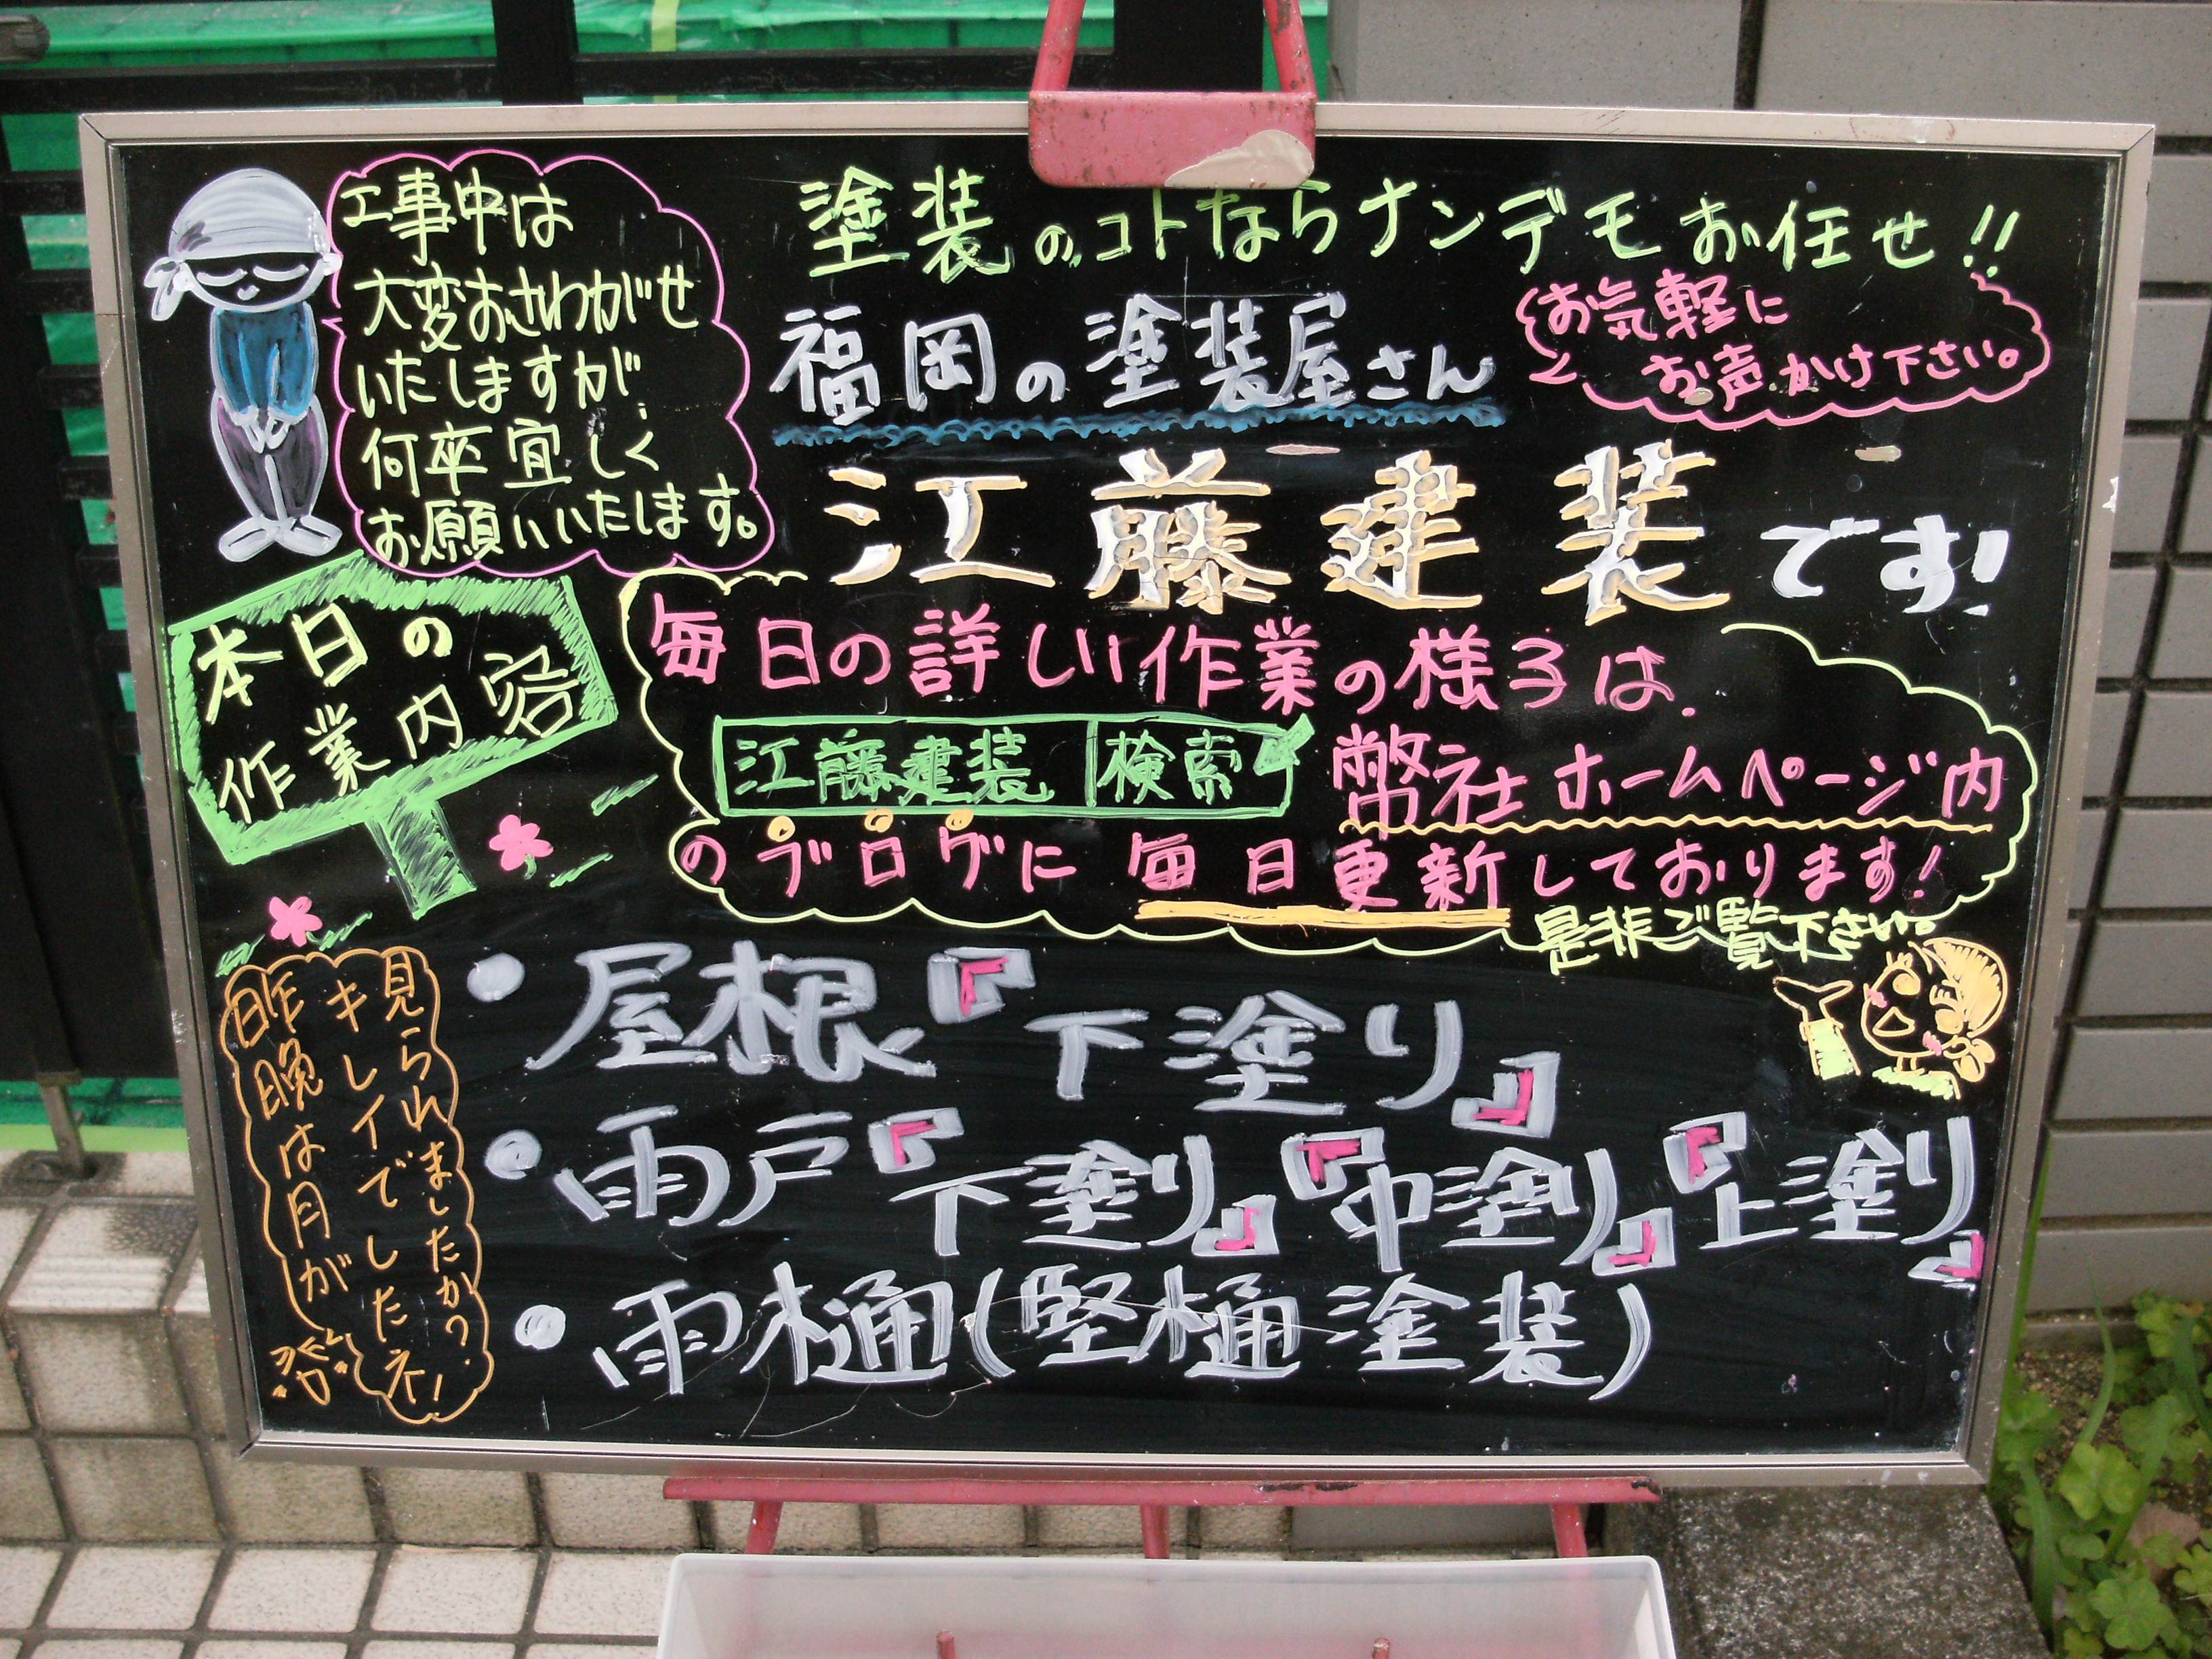 工事中は
大変おさわがせ
いたしますが、
何卒宜しく
お願いいたします。
塗装のコトならナンデモお任せ!!
福岡の塗装屋さん
お気軽に
お声かけ下さい。
江藤建装です!
本日の
作業内容
毎日の詳しい作業の様子は、
江藤建装 検索
弊社ホームページ内
のブログに毎日更新しております!
是非ご覧下さい。
昨晩は月が
キレイでしたネ!
見られましたか?
・屋根『下塗り』
・雨戸『下塗り』『中塗り』『上塗り』
・雨樋(堅樋塗装)